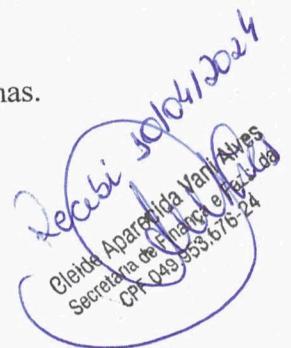 nas.
Recebi 30/04/2024
Cleide Aparecida Vani Alves
Secretária de Finança e Fazenda
CPF 049.953.676-24